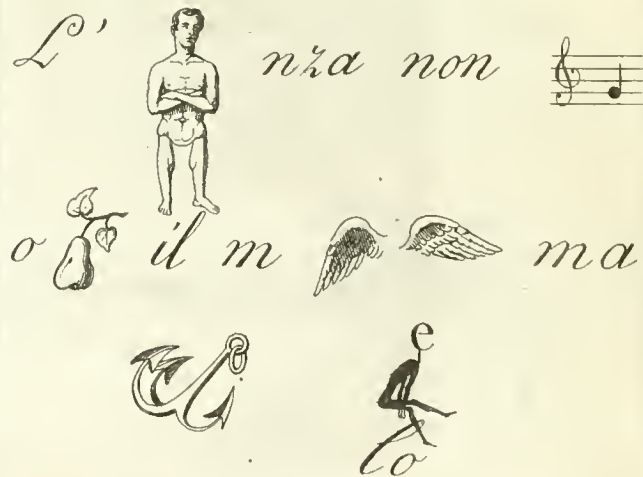 L' nza non
o il m ma
e
lo